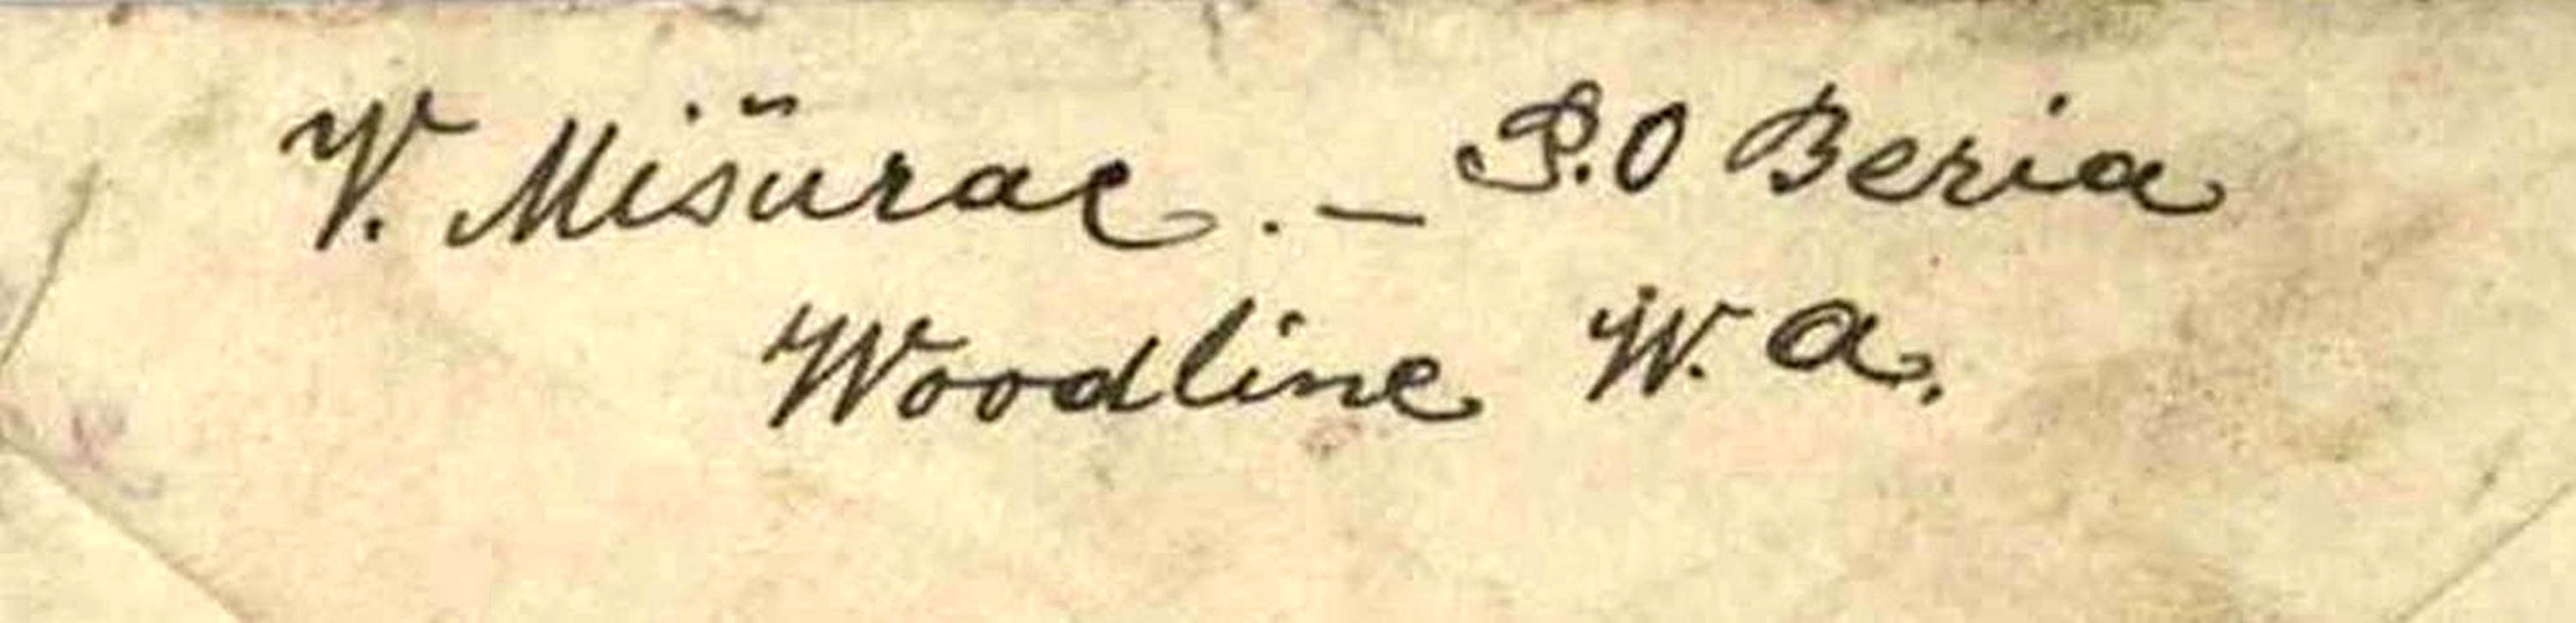 V. Mišurac. — P.O Beria
Woodline W. A.